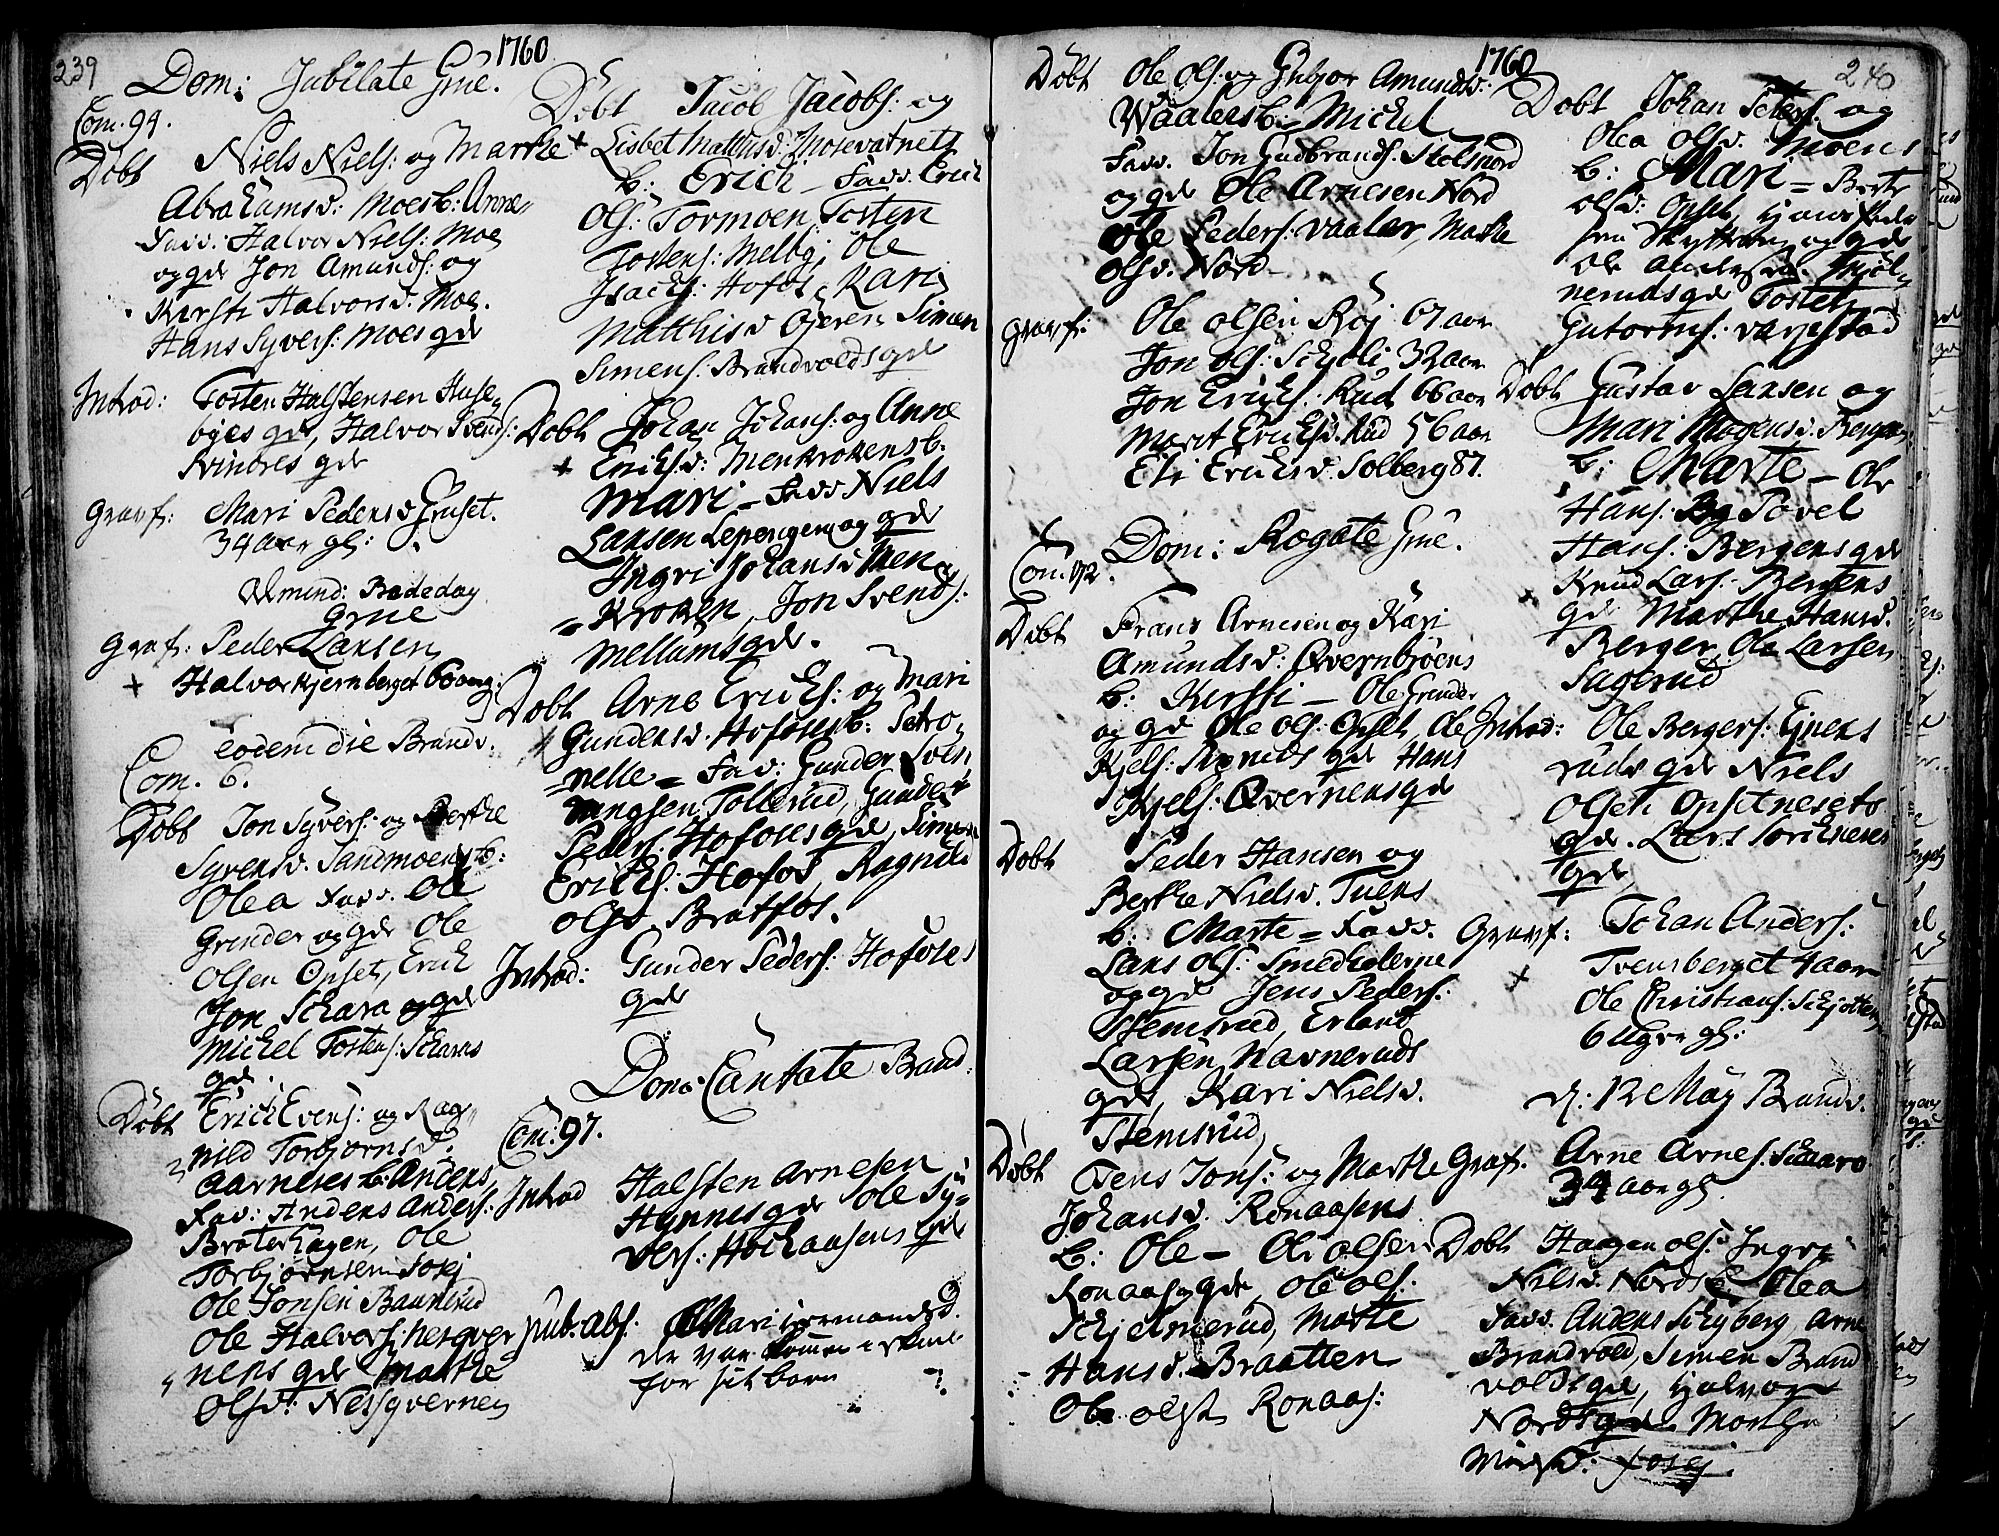 239
1760
Dom: Jubilate Grue.
Com. 94.
Døbt Niels Niels: og Marthe
Abrahamsd: Moes b: Anne
Fadd: Halvor Niels: Moe
og gde Jon Amunds: og
Kirsti Halvorsd. Moe.
Hans Syvers: Moes gde
Introd: Tosten Halstensen Huse-
byes gde, Halvor Svends:
Svindres gde
Gravf: Mari Pedersd Gruset.
34 aar gl:
Almind: Bededag
Grue
Graf: Peder Larsen
+ Halvor Kjernberget 60 aar
eodem die Brandv.
Com. 6.
Døbt Jon Syvers: og Berthe
Syversd. Sandmoens b:
Olea Fadd. Ole
Grinder og gde Ole
Olsen Opset, Erich
Jon Schara og gde
Michel Tostens: Scharas
gde.
Døbt Erich Evens: og Rag-
nild Torbjørnsd.
Aarneses b: Anders,
Fad: Anders Anders:
Bråterhagen, Ole
Torbjørnsen
Ole Jonsen
Ole Halvors: Nesqver
nens gde Marthe
Olsd: Nesqvernen
Døbt Jacob Jacobs: og
+ Lisbet Mattisd:
b: Erich - Fadd. Erich
Ols: Tormoen, Tosten
Tostens: Melby, Ole
Isachs: Hofos, Kari
Matthisd Øieren Simen
Simens: Brandvolds gde
Døbt Johan Johans: og Anne
+ Ericksd: Menkrokens b.
Mari - Fadd Niels
Larsen Lepengen og gde
Ingri Johansd Men
= Kroken, Jon Svends:
Mellums gde.
Døbt Arne Ericks: og Mari
Gundersd. Hofoses b. Petro-
nelle = Fad: Gunder Sven
ungsen Tollerud, Gunder
Peders: Hofoses gde, Simen
Ericks: Hofos, Ragnild
Olsd Bratfos.
Introd: Gunder Peders: Hofoses
gde
Dom: Cantate Brand.
Com: 97.
Introd Halsten Arnesen
Hynnes gde Ole Sy-
vers: Hochaasens gde
pub. abs. Mari
der var kommen i
for sit barn
1760
240
Døbt Ole Ols: og Gubjør Amundsd:
Waalers b: Michel
Fadd. Jon Gudbrands.
og gde Ole Arnesen Nord
Ole Peders: Vaaler, Marthe
Olsd. Nord
Gravf: Ole Olsen Røj 67 aar
Jon Ols: Schjøli 32 aar
Jon Ericks. Rud 66 aar
Marit Ericksd. Rud 56 aar
Eli Ericksd. Solberg 87.
Dom: Rogate Grue.
Com. 172.
Døbt Frans Arnesen og Kari
Amundsd: Qvernbrøens
b: Kirsti - Ole Grinder
og gde Ole Ols. Opset, Ole
Kjels: gde Hans
Kjels: Qvernens gde
Døbt Peder Hansen og
Berthe Nielsd. Tuens
b. Marte = Fadd.
Lars Ols: Smedholerne
og gde Jens Peders.
Stemsrud, Erland
Larsen Navneruds
gde, Kari Nielsd.
Stemsrud,
Døbt Jens Jons: og Marthe
Johansd. Ronaasens
b: Ole - Ole Olsen
Ronaas og gde, Ole Ols:
Schjelnerud, Marte
Hansd. Braatten
Ole Ols: Ronaas:
Døbt Johan Peters: og
Olea Olsd. Moens
b: Mari = Berte
Olsd: Opset,
og gde
Ole Anders:
neruds gde Tosten
Gutorms: Varpestad
Døbt Gustav Larsen og
Mari Mogensd. Berger
b: Marte - Ole
Hans. Povel
Hans. Bergers gde
Knud Lars. Bergers
gde Marthe Hansd.
Berger, Ole Larsen
Sagerud
Introd: Ole Bergers:
ruds gde Niels
Olsen Opsetnesets
gde. Lars
gde
Gravf: Johan Anders:
+ Tvensberget 4 aar
Ole Christians:
6 Uger gl:
d. 12 May Brandv.
Graf. Arne Arnes. Schara
34 aar gl.
Døbt Haagen Ols: Ingri
Nielsd. Nords b Olea
Fadd. Anders Schyberg Arne
Brandvold, Simen Brand
volds gde, Halvor
Nords gde Marthe